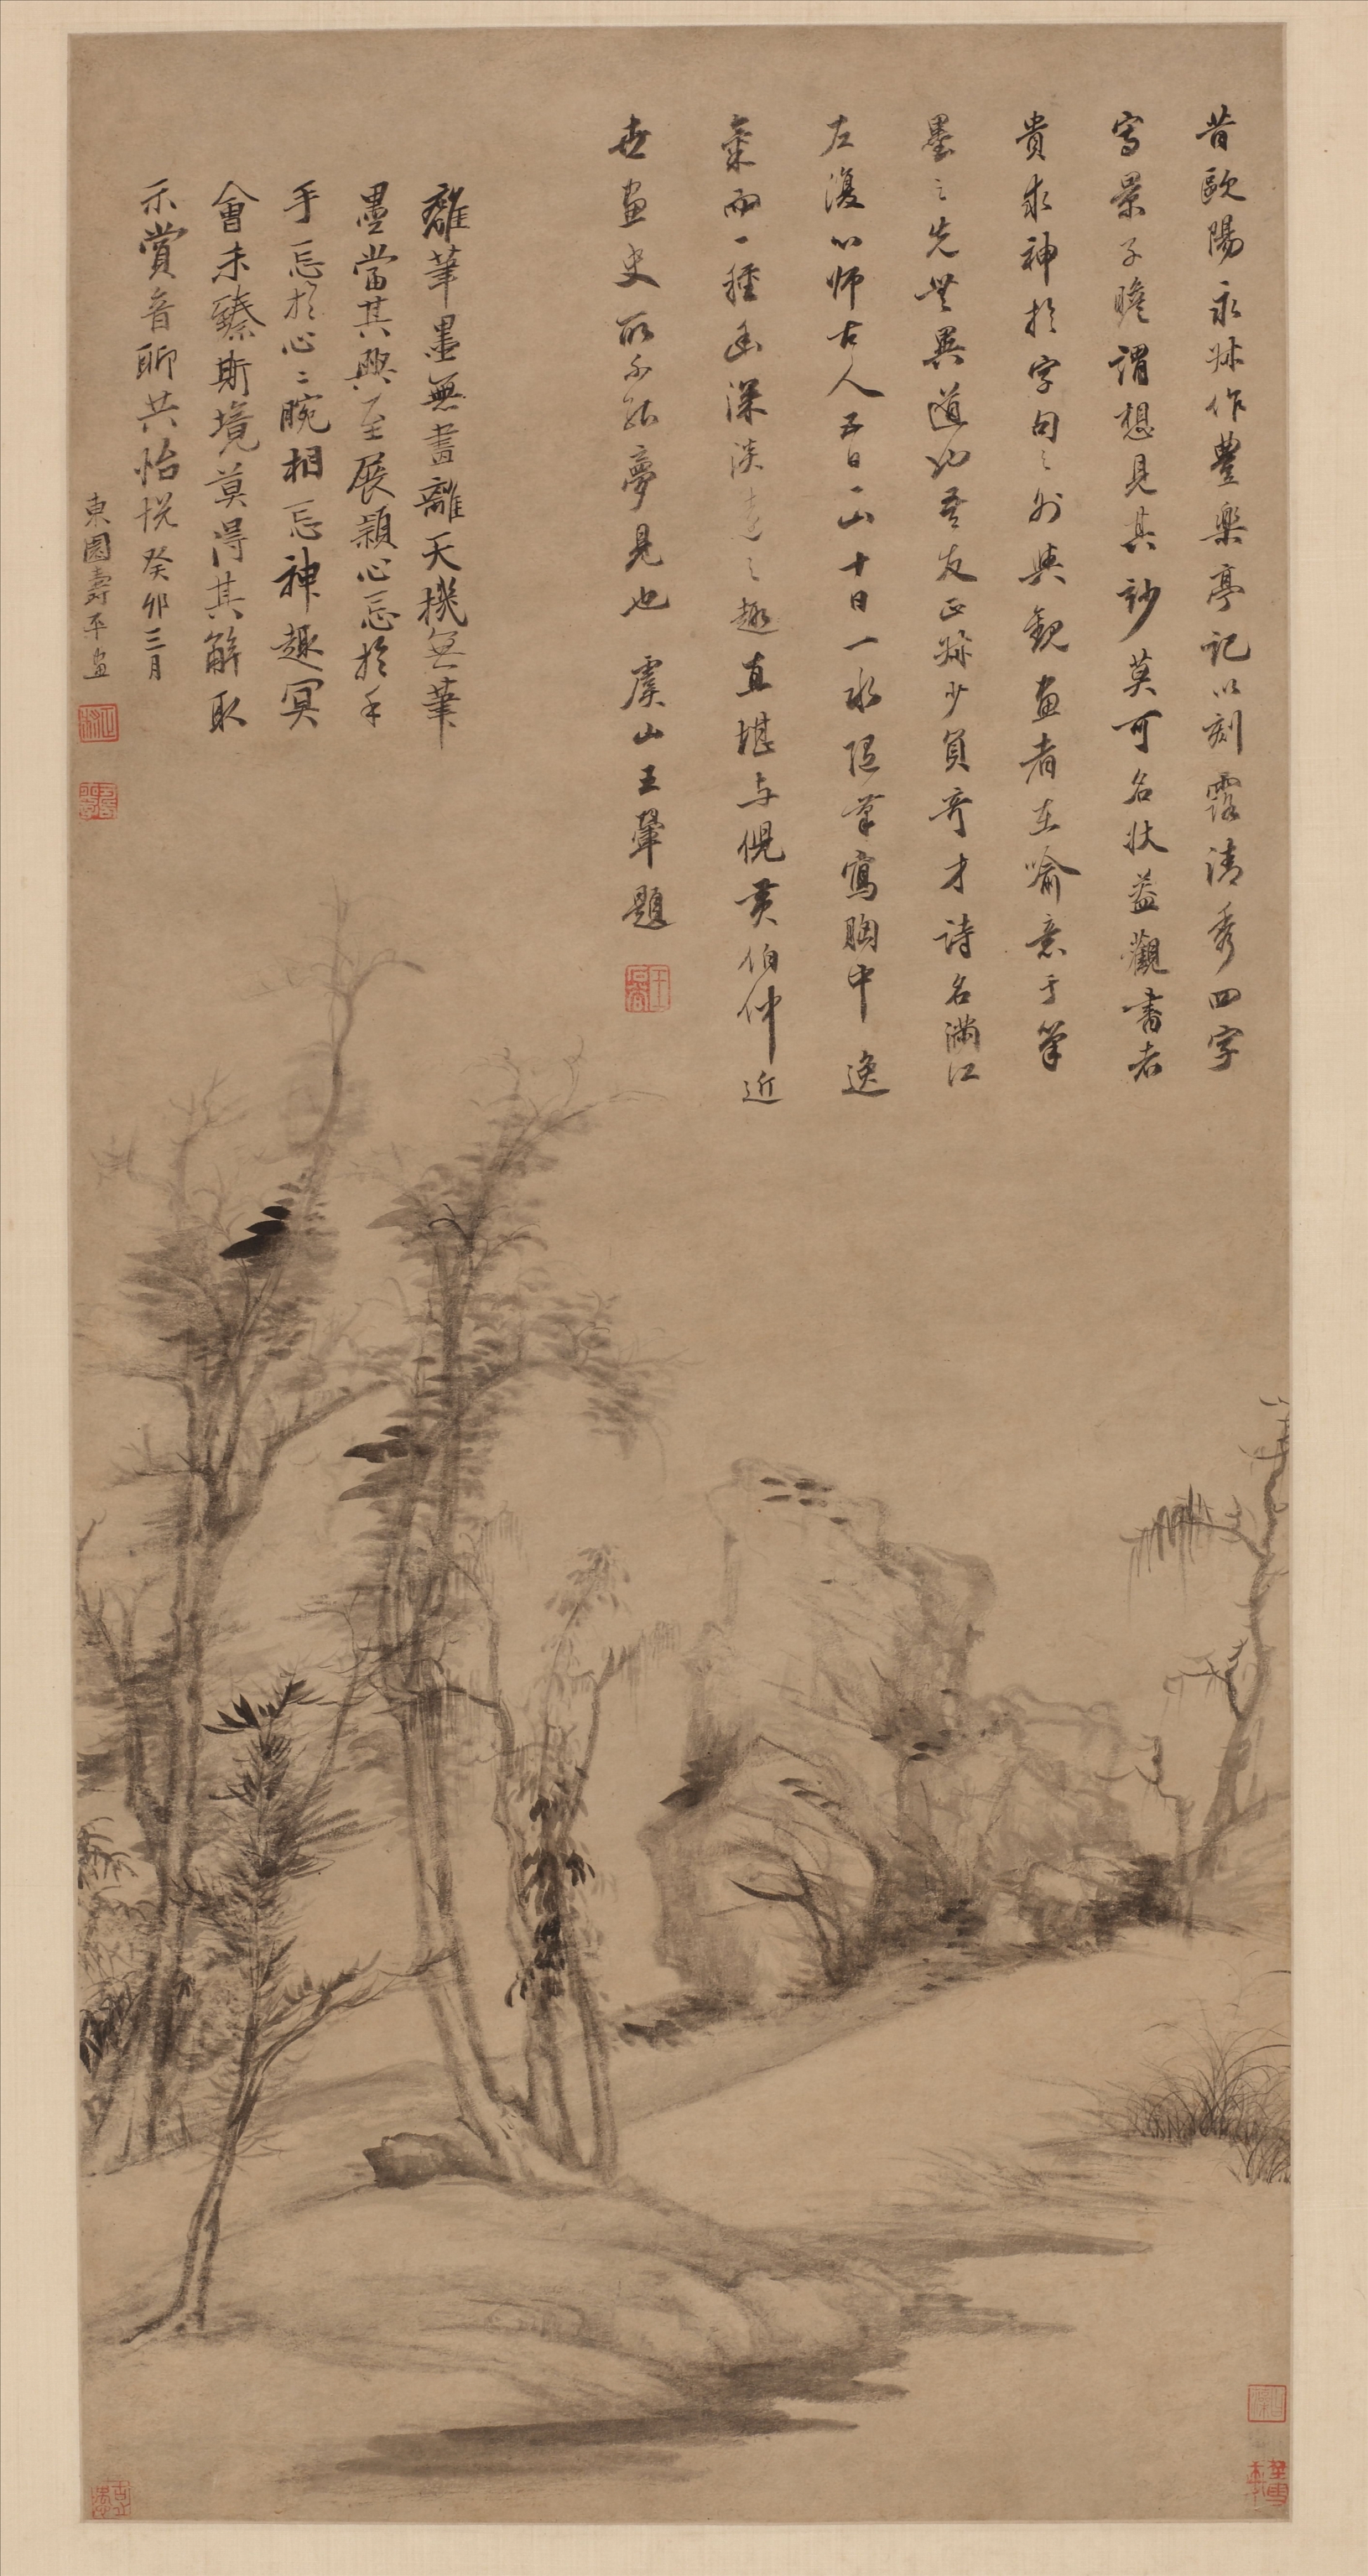 昔歐陽永叔作豐樂亭記以刻露清秀四字
寫景子瞻謂想見其妙莫可名狀蓋觀書者
貴求神於字句之外與觀畫者在喻意于筆
墨之先無異道也吾友正叔少負奇才詩名滿江
左復以師古人五日一山十日一水隨筆寫胸中逸
氣而一種幽深淡遠之趣直堪与倪黃伯仲近
世畫史所不能夢見也 虞山王翬題
離筆墨無畫離天機無筆
墨當其興至展穎心忘於手
手忘於心心腕相忘神趣冥
會未臻斯境莫得其解取
示賞音聊共怡悅癸卯三月
東園壽平畫